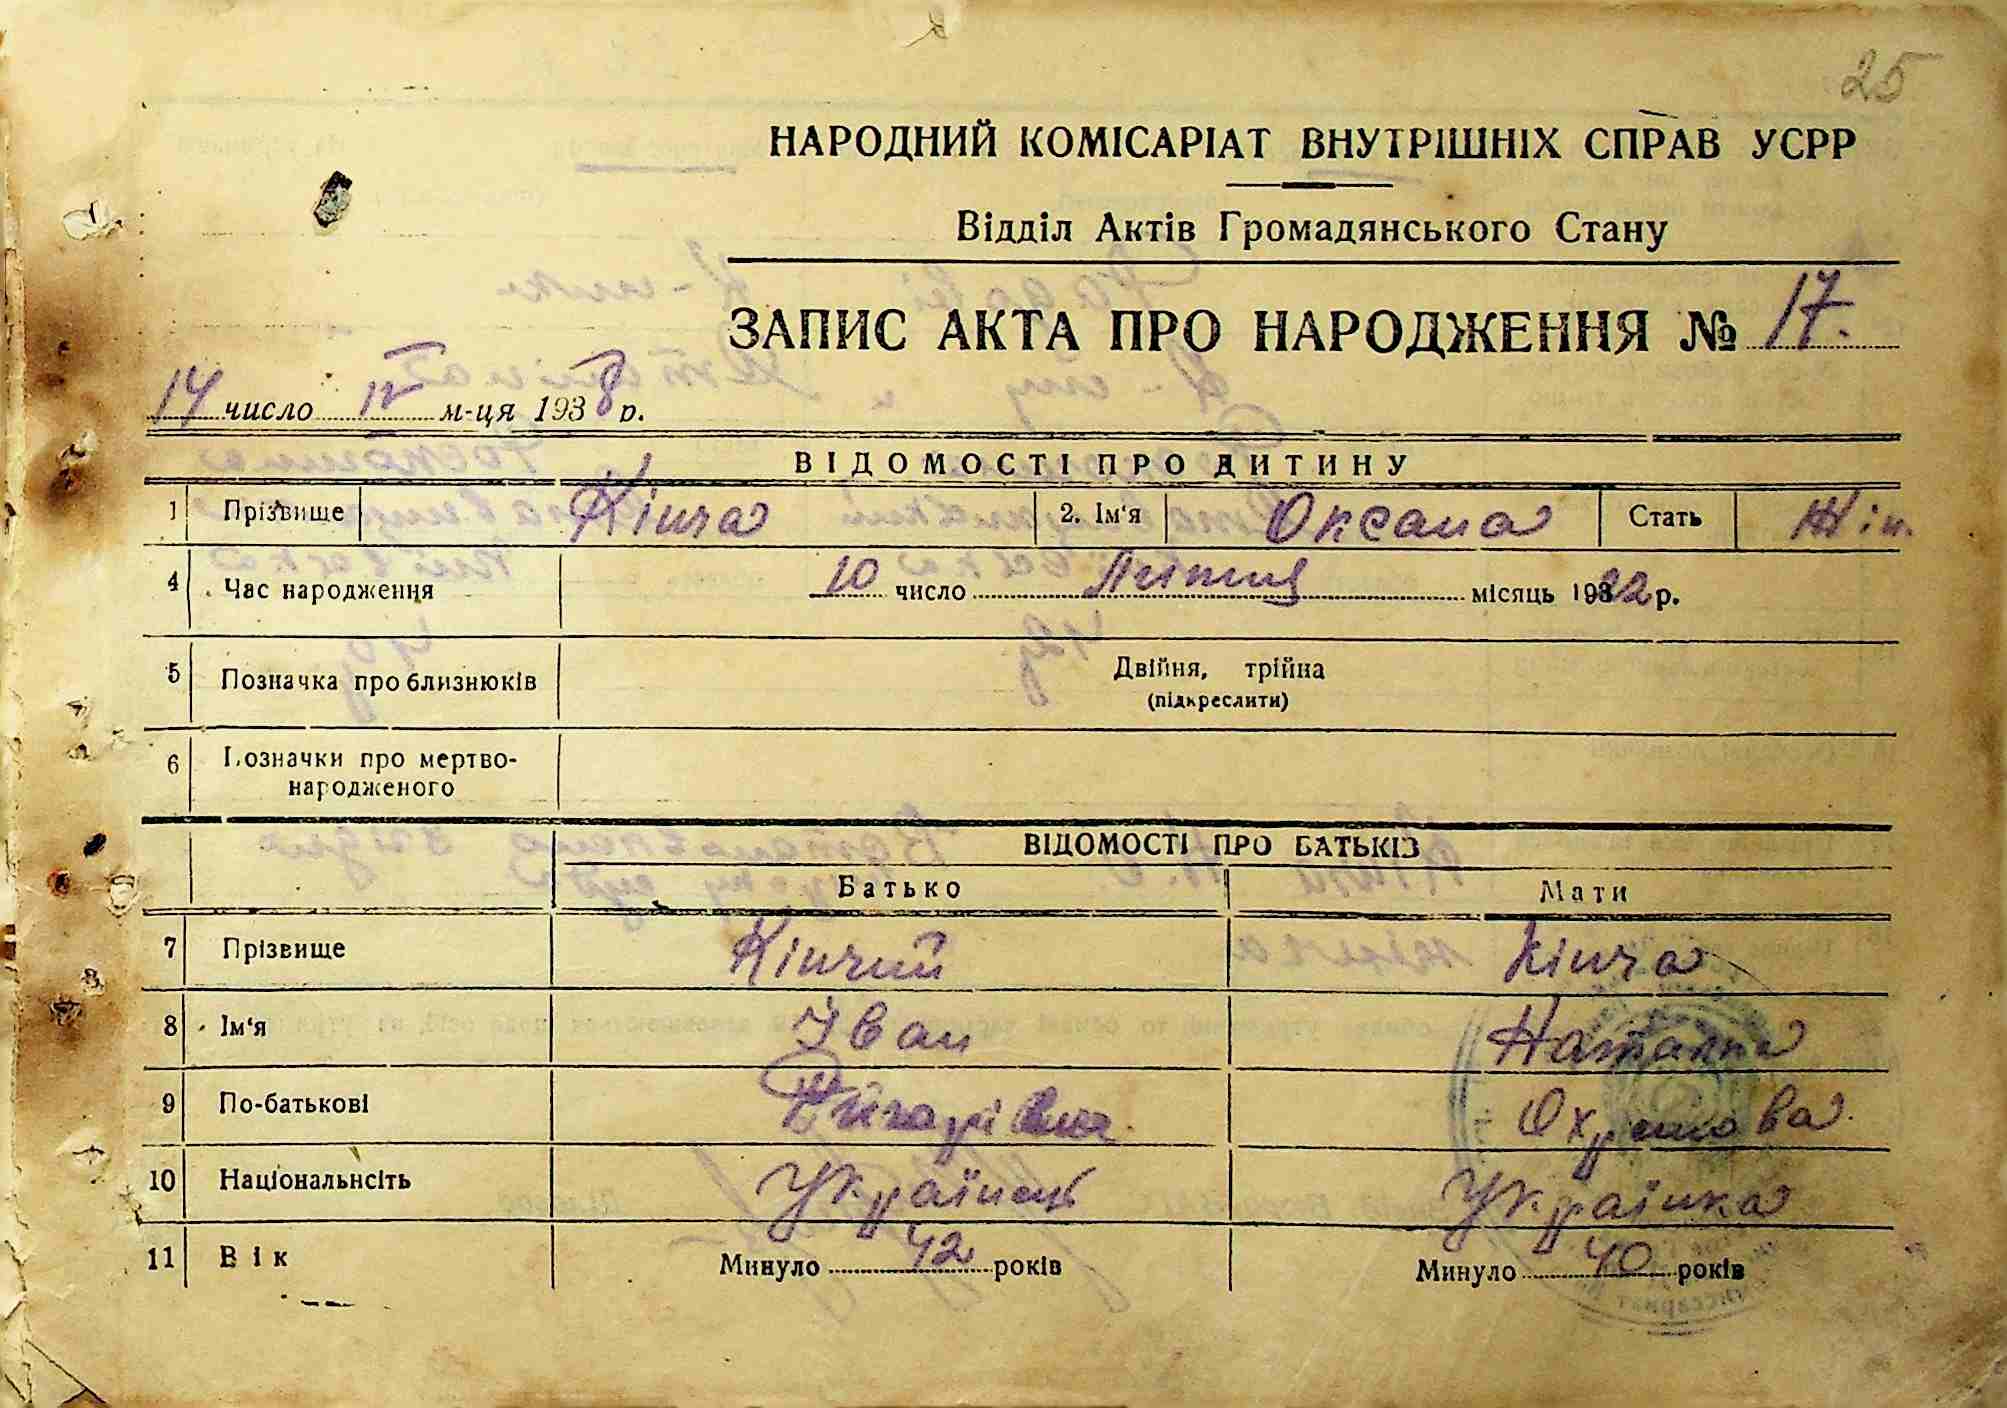 25
НАРОДНИЙ КОМІСАРІАТ ВНУТРІШНІХ СПРАВ УСРР
Відділ Актів Громадянського Стану
ЗАПИС АКТА ПРО НАРОДЖЕННЯ № 17.
14 число IV м-ця 1938 р.
ВІДОМОСТІ ПРО ДИТИНУ
1 Прізвище Кінча 2. Ім'я Оксана Стать Жін.
4 Час народження 10 число Липня місяць 1922 р.
5 Позначка про близнюків Двійня, трійна
(підкреслити)
6 Позначки про мертво-
народженого
ВІДОМОСТІ ПРО БАТЬКІВ
Батько Мати
7 Прізвище Кінчий Кінча
8 Ім'я Іван Наталка
9 По-батькові
10 Національнсіть Українець Українка
11 Вік Минуло 42 років Минуло 40 років